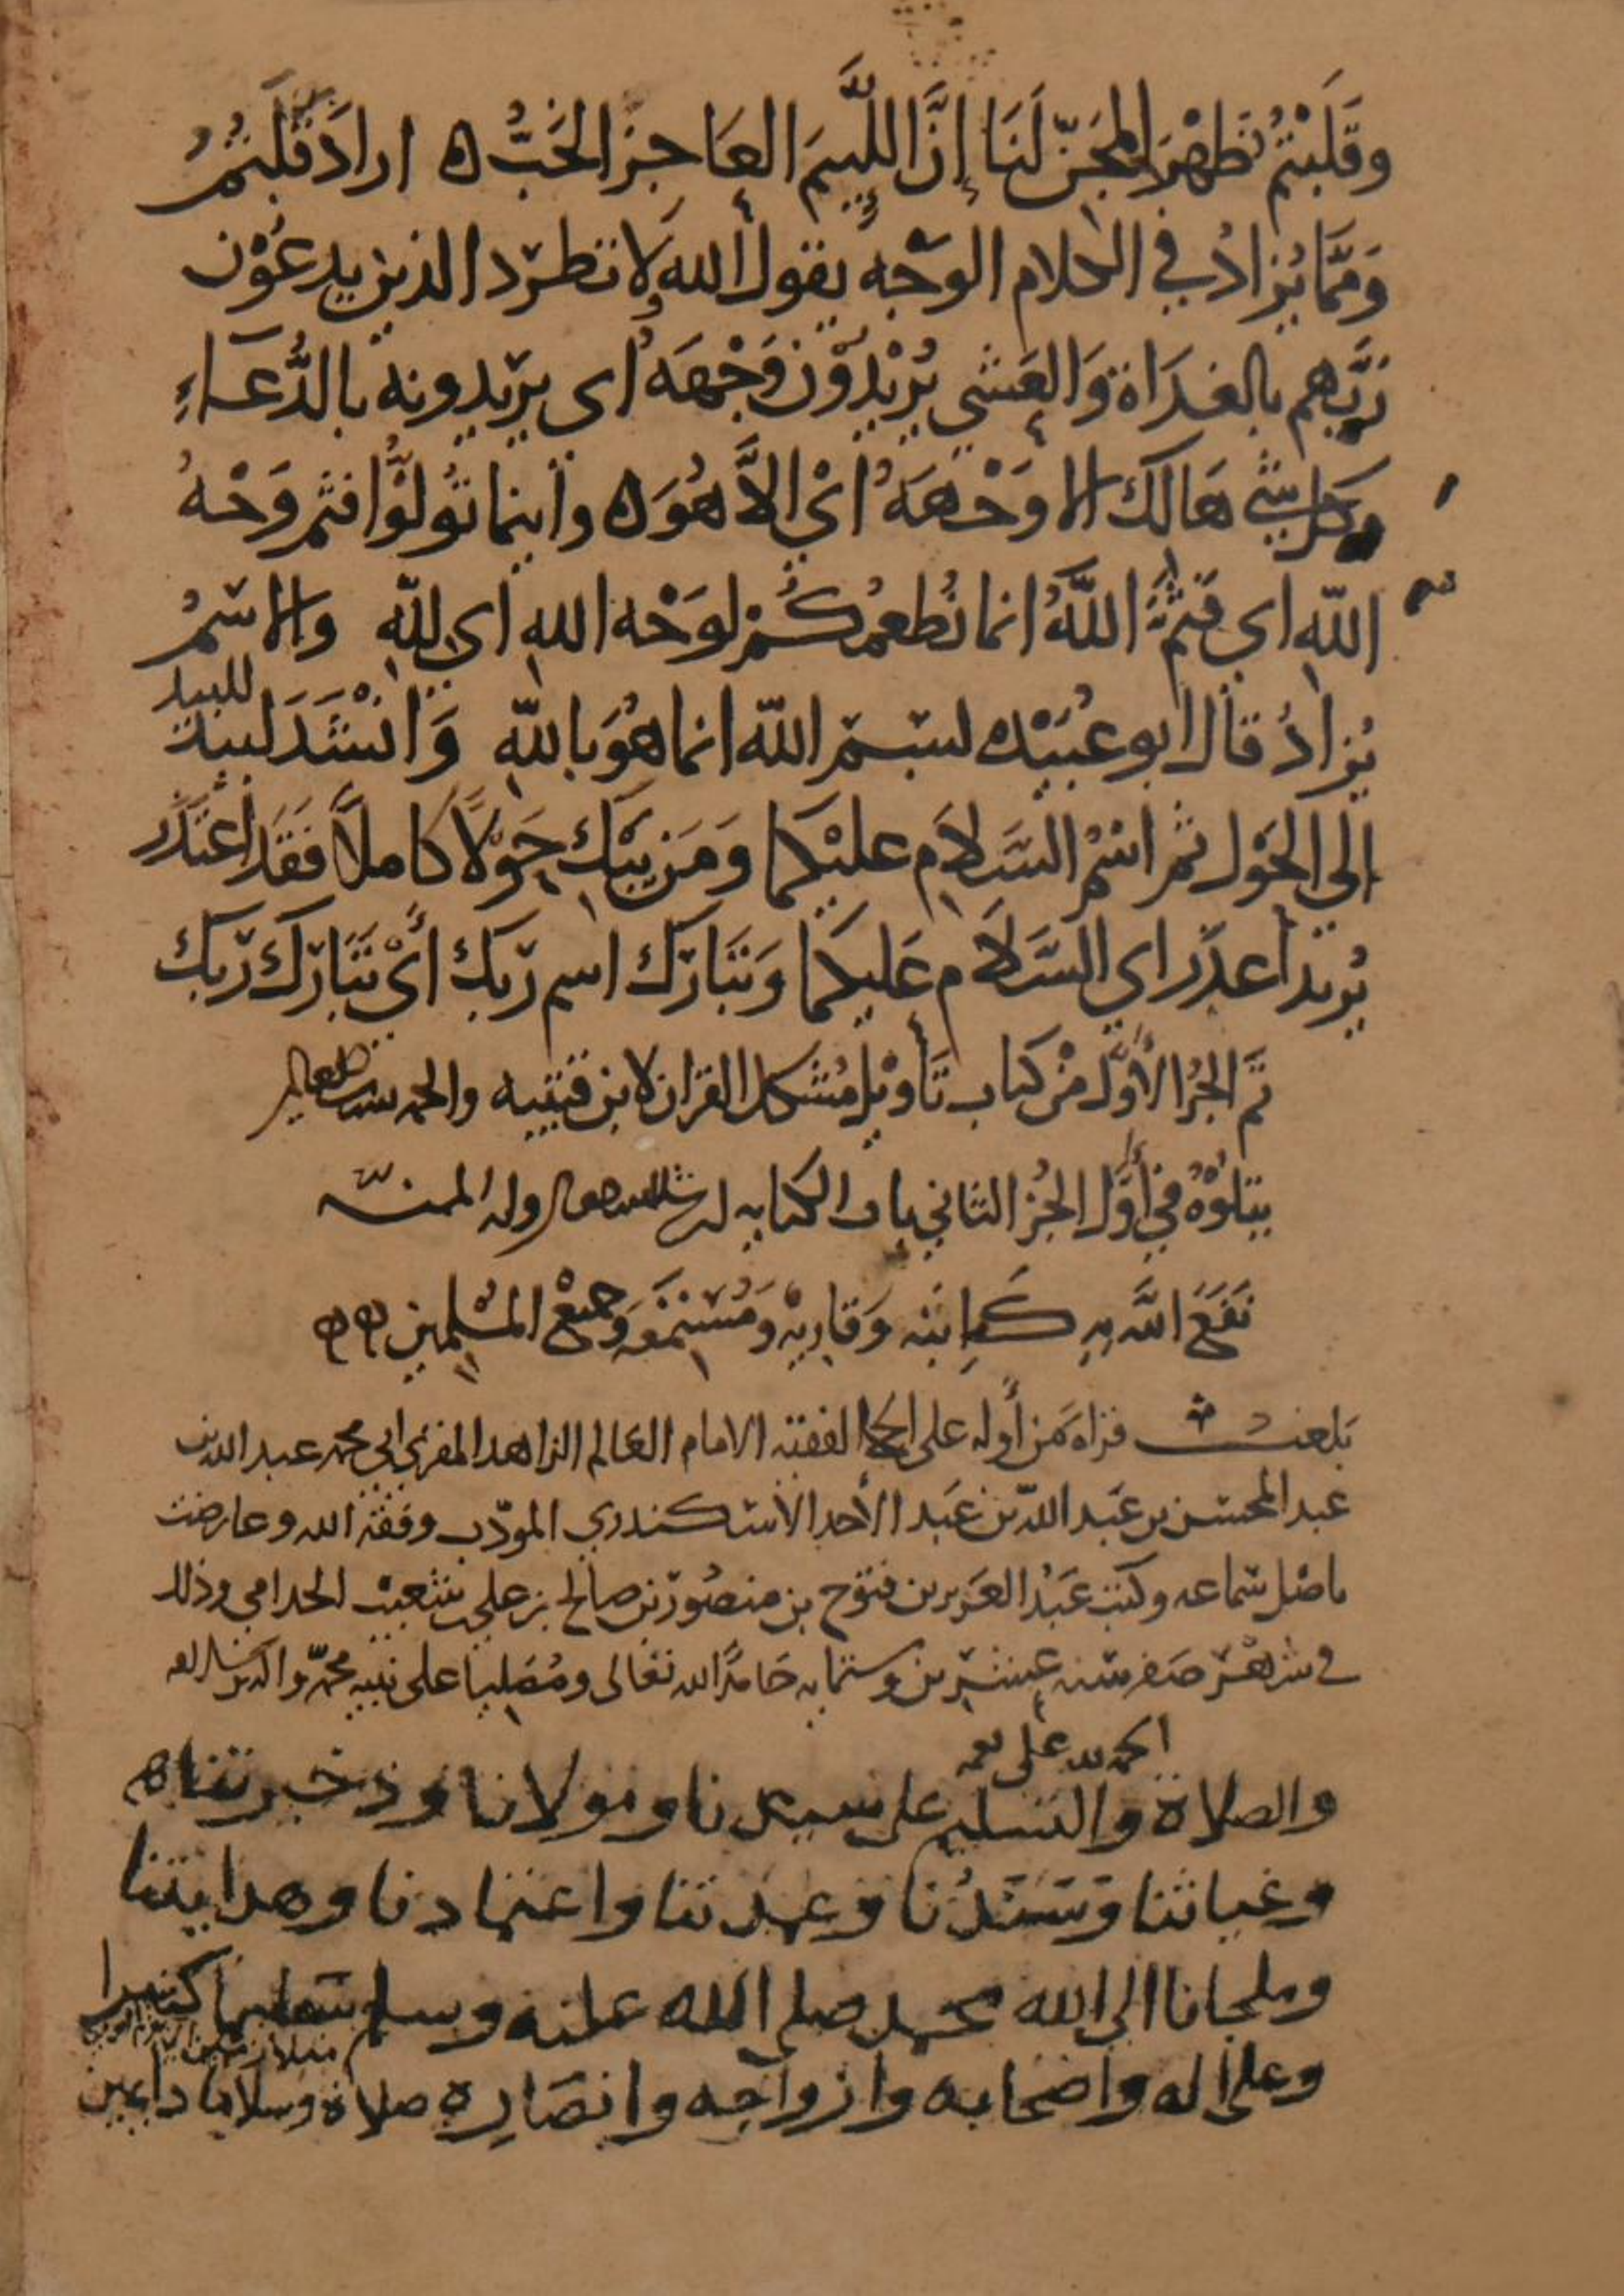 وقَلَبْتُم ظَهْرَ المِجَنّ لَنَا إنَّ اللَّئِيمَ العَاجِزُ الخَبُّ ه اراد قَلَبْتُمْ
وَمِمَّا يُزَادُ في الكلام الوَجْه يقول الله ولا تطرد الذين يدعُوْن
رَبَّهم بالغدَاة وَالعَشي يُرْيدُوْن وَجْهَهُ اي يريدونه بالدُّعَاءِ
وكل شي هَالك الا وَجْهَهُ اي الاَّ هُوَ ه واينما تُولُّوا فثم وَجْهُ
اللّه اي فثَمَّ اللَّهُ انما نُطعمُكُمْ لوَجْه الله اي للّهِ والاسمُ
للبيد
يُزادُ قال ابو عُبَيْده لبسم اللّه انما هُوَ باللّهِ وَانْشَدَ لبيد
إلى الحَوْل ثم اسْمُ السَّلاَم عليْكما وَمَن يَبْك حَوْلاً كاملاً فَقَد اعتذر
يُريد اعذر اي السَّلاَم عَليكما وَتَبَارك اسم ربك أَيْ تَبَارك ربك
تَمَّ الجُزْ الأوَّل منْ كتاب تَأويْل مُشكل القران لابن قتيبه والحمد لله رب العالمين
يتلوْهُ في أوَّل الجُز الثاني باب الكنايه ان شا الله تعالى وله المنه
نَفَعَ اللَّه بِهِ كَاتبَه وَقَارِيْه وَمُسْتمعَه وَجميعْ المسْلمين
بَلغت قراة من أوله على الفقيه الامام العَالم الزاهد المقري ابي محمد عبد الله بن
عبد المحسن بن عَبد اللّه بن عَبد الأحد الأسكندري المودّب وفقه الله وعارضت
باصْل سَماعه وكتب عَبْد العَزيز بن فتوح بن منصُور بن صَالح بن علي بن شعيب الجدامي وذلك
في شهْر صَفر سنه عشرين وستمايه حَامدًا لله تعَالى ومُصَليا على نبيه محمّد واله
الحمد لله على نعمه
والصلاة والتسليم على سيدنا ومولانا وذخيرتنا ه
وغياثنا وسَنَدُنا وعمدتنا واعتمادنا وهدايتنا
وملجانا الى الله محمد صلى الله عليه وسلم تسليما كثيرا
وعلى اله واصحابه وازواجه وانصَاره صلاة وسلاما دايمين